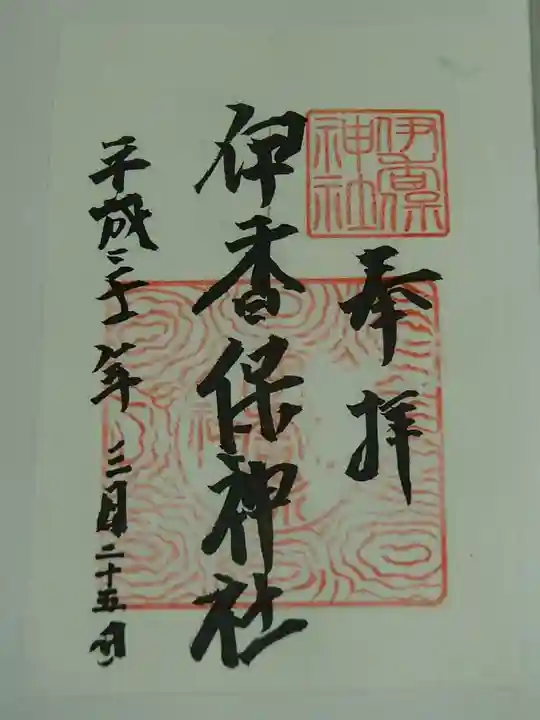 奉拝
伊香保神社
平成二十一年三月二十五日
伊香保
神社